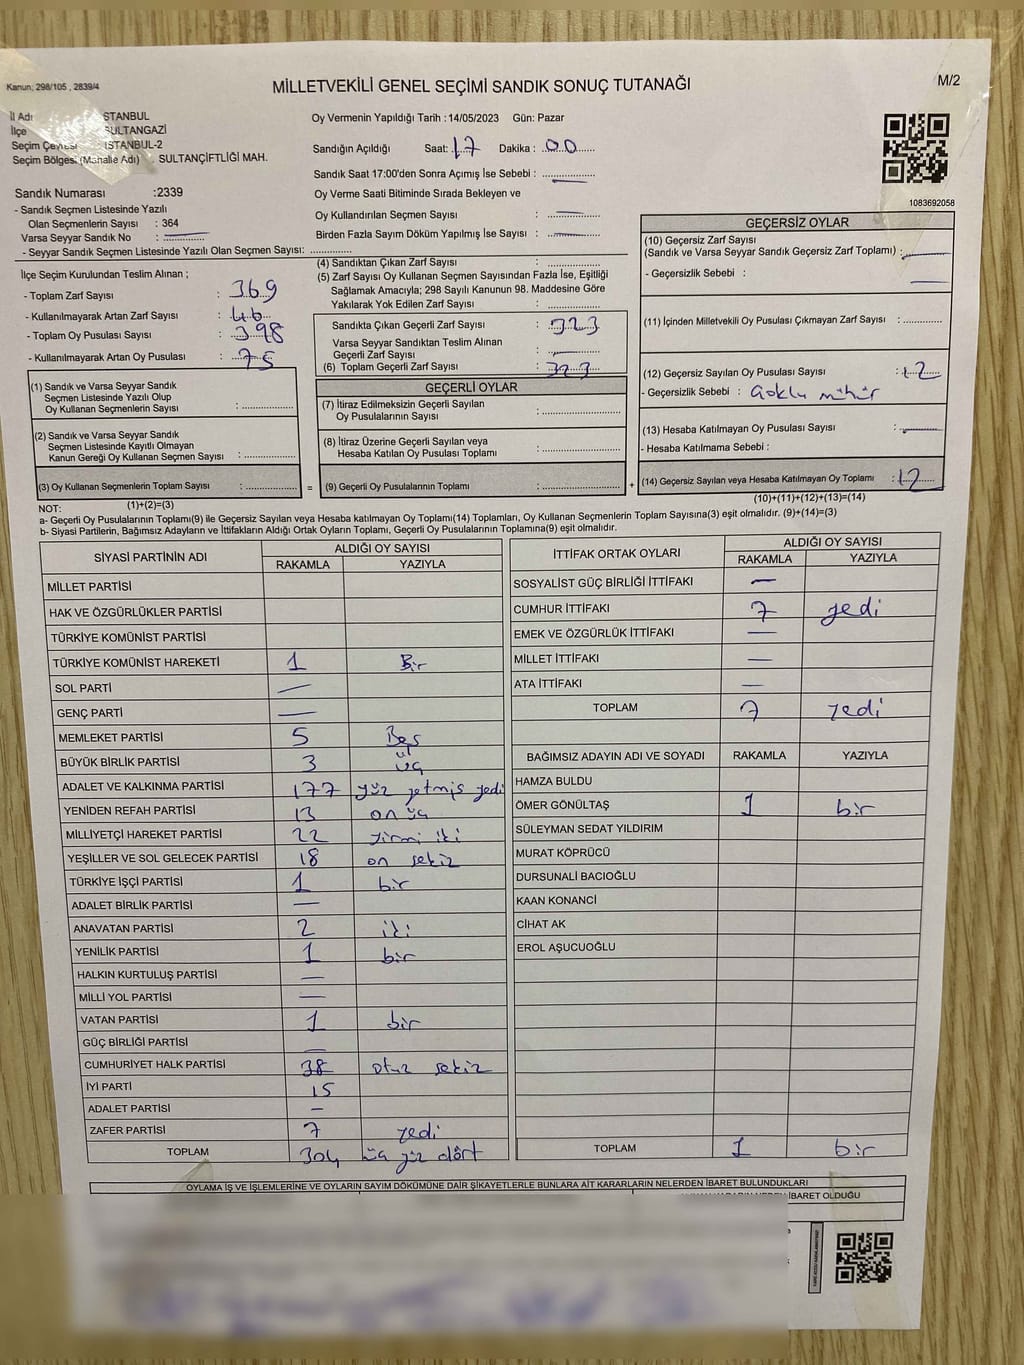 Kanun; 298/105 , 2839/4
MİLLETVEKİLİ GENEL SEÇİMİ SANDIK SONUÇ TUTANAĞI
M/2
İl Adı STANBUL
İlçe SULTANGAZİ
Seçim Çevresi İSTANBUL-2
Seçim Bölgesi (Mahalle Adı) SULTANÇİFTLİĞİ MAH.
Sandık Numarası :2339
- Sandık Seçmen Listesinde Yazılı
Olan Seçmenlerin Sayısı : 364
Varsa Seyyar Sandık No :
- Seyyar Sandık Seçmen Listesinde Yazılı Olan Seçmen Sayısı:
Oy Vermenin Yapıldığı Tarih :14/05/2023 Gün: Pazar
Sandığın Açıldığı Saat: 17 Dakika : 00
Sandık Saat 17:00'den Sonra Açımış İse Sebebi :
Oy Verme Saati Bitiminde Sırada Bekleyen ve
Oy Kullandırılan Seçmen Sayısı :
Birden Fazla Sayım Döküm Yapılmış İse Sayısı :
1083692058
İlçe Seçim Kurulundan Teslim Alınan ;
- Toplam Zarf Sayısı : 369
- Kullanılmayarak Artan Zarf Sayısı : 46
- Toplam Oy Pusulası Sayısı : 398
- Kullanılmayarak Artan Oy Pusulası : 75
(1) Sandık ve Varsa Seyyar Sandık
Seçmen Listesinde Yazılı Olup
Oy Kullanan Seçmenlerin Sayısı :
(2) Sandık ve Varsa Seyyar Sandık
Seçmen Listesinde Kayıtlı Olmayan
Kanun Gereği Oy Kullanan Seçmen Sayısı :
(3) Oy Kullanan Seçmenlerin Toplam Sayısı :
(1)+(2)=(3)
(4) Sandıktan Çıkan Zarf Sayısı :
(5) Zarf Sayısı Oy Kullanan Seçmen Sayısından Fazla İse, Eşitliği
Sağlamak Amacıyla; 298 Sayılı Kanunun 98. Maddesine Göre
Yakılarak Yok Edilen Zarf Sayısı :
Sandıkta Çıkan Geçerli Zarf Sayısı : 323
Varsa Seyyar Sandıktan Teslim Alınan
Geçerli Zarf Sayısı :
(6) Toplam Geçerli Zarf Sayısı : 323
GEÇERLİ OYLAR
(7) İtiraz Edilmeksizin Geçerli Sayılan
Oy Pusulalarının Sayısı :
(8) İtiraz Üzerine Geçerli Sayılan veya
Hesaba Katılan Oy Pusulası Toplamı :
= (9) Geçerli Oy Pusulalarının Toplamı : +
GEÇERSİZ OYLAR
(10) Geçersiz Zarf Sayısı
(Sandık ve Varsa Seyyar Sandık Geçersiz Zarf Toplamı) :
- Geçersizlik Sebebi :
(11) İçinden Milletvekili Oy Pusulası Çıkmayan Zarf Sayısı :
(12) Geçersiz Sayılan Oy Pusulası Sayısı : 12
- Geçersizlik Sebebi : Çoklu mühür
(13) Hesaba Katılmayan Oy Pusulası Sayısı :
- Hesaba Katılmama Sebebi :
(14) Geçersiz Sayılan veya Hesaba Katılmayan Oy Toplamı : 12
(10)+(11)+(12)+(13)=(14)
NOT:
a- Geçerli Oy Pusulalarının Toplamı(9) ile Geçersiz Sayılan veya Hesaba katılmayan Oy Toplamı(14) Toplamları, Oy Kullanan Seçmenlerin Toplam Sayısına(3) eşit olmalıdır. (9)+(14)=(3)
b- Siyasi Partilerin, Bağımsız Adayların ve İttifakların Aldığı Ortak Oyların Toplamı, Geçerli Oy Pusulalarının Toplamına(9) eşit olmalıdır.
SİYASİ PARTİNİN ADI ALDIĞI OY SAYISI
RAKAMLA YAZIYLA
MİLLET PARTİSİ
HAK VE ÖZGÜRLÜKLER PARTİSİ
TÜRKİYE KOMÜNİST PARTİSİ
TÜRKİYE KOMÜNİST HAREKETİ 1 Bir
SOL PARTİ —
GENÇ PARTİ —
MEMLEKET PARTİSİ 5 Beş
BÜYÜK BİRLİK PARTİSİ 3 üç
ADALET VE KALKINMA PARTİSİ 177 yüz yetmiş yedi
YENİDEN REFAH PARTİSİ 13 on üç
MİLLİYETÇİ HAREKET PARTİSİ 22 yirmi iki
YEŞİLLER VE SOL GELECEK PARTİSİ 18 on sekiz
TÜRKİYE İŞÇİ PARTİSİ 1 bir
ADALET BİRLİK PARTİSİ —
ANAVATAN PARTİSİ 2 iki
YENİLİK PARTİSİ 1 bir
HALKIN KURTULUŞ PARTİSİ —
MİLLİ YOL PARTİSİ —
VATAN PARTİSİ 1 bir
GÜÇ BİRLİĞİ PARTİSİ —
CUMHURİYET HALK PARTİSİ 38 otuz sekiz
İYİ PARTİ 15
ADALET PARTİSİ —
ZAFER PARTİSİ 7 yedi
TOPLAM 304 üç yüz dört
İTTİFAK ORTAK OYLARI ALDIĞI OY SAYISI
RAKAMLA YAZIYLA
SOSYALİST GÜÇ BİRLİĞİ İTTİFAKI —
CUMHUR İTTİFAKI 7 yedi
EMEK VE ÖZGÜRLÜK İTTİFAKI —
MİLLET İTTİFAKI —
ATA İTTİFAKI —
TOPLAM 7 yedi
BAĞIMSIZ ADAYIN ADI VE SOYADI RAKAMLA YAZIYLA
HAMZA BULDU
ÖMER GÖNÜLTAŞ 1 bir
SÜLEYMAN SEDAT YILDIRIM
MURAT KÖPRÜCÜ
DURSUNALİ BACIOĞLU
KAAN KONANCİ
CİHAT AK
EROL AŞUCUOĞLU
TOPLAM 1 bir
OYLAMA İŞ VE İŞLEMLERİNE VE OYLARIN SAYIM DÖKÜMÜNE DAİR ŞİKAYETLERLE BUNLARA AİT KARARLARIN NELERDEN İBARET BULUNDUKLARI
İBARET OLDUĞU